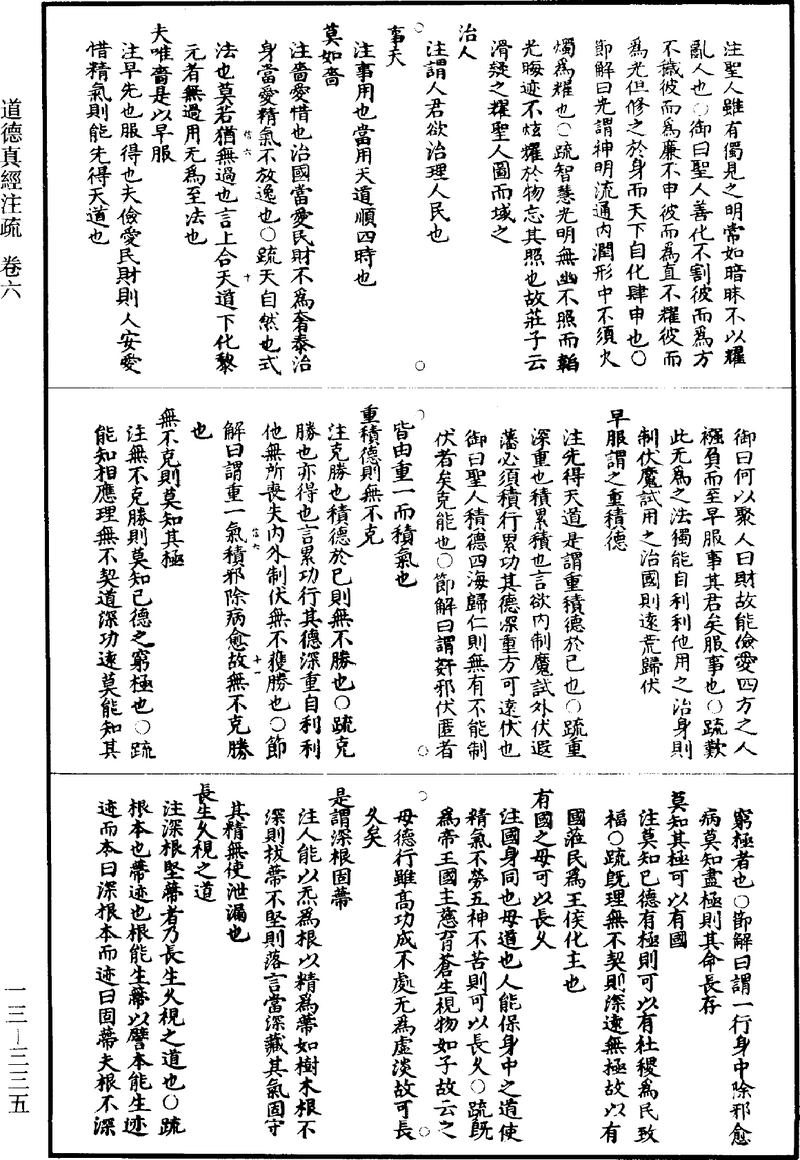 道德真經注疏　卷六
注聖人雖有獨見之明常如暗昧不以耀
亂人也○御曰聖人善化不割彼而爲方
不穢彼而爲廉不申彼而爲直不耀彼而
爲光但修之於身而天下自化肆申也○
節解曰光謂神明流通內潤形中不須火
燭爲耀也○疏智慧光明無幽不照而韜
光晦迹不炫耀於物忘其照也故莊子云
滑疑之耀聖人圖而域之
治人
注謂人君欲治理人民也
事天
注事用也當用天道順四時也
莫如嗇
注嗇愛惜也治國當愛民財不爲奢泰治
身當愛精氣不放逸也○疏天自然也式
法也莫若猶無過也言上合天道下化黎
元者無過用无爲至法也
夫唯嗇是以早服
注早先也服得也夫儉愛民財則人安愛
惜精氣則能先得天道也
御曰何以聚人曰財故能儉愛四方之人
襁負而至早服事其君矣服事也○疏歎
此无爲之法獨能自利利他用之治身則
制伏魔試用之治國則遠荒歸伏
早服謂之重積德
注先得天道是謂重積德於己也○疏重
深重也積累積也言欲內制魔試外伏遐
藩必須積行累功其德深重方可遠伏也
御曰聖人積德四海歸仁則無有不能制
伏者矣克能也○節解曰謂姧邪伏匿者
皆由重一而積氣也
重積德則無不克
注克勝也積德於己則無不勝也○疏克
勝也亦得也言累功行其德深重自利利
他無所喪失內外制伏無不獲勝也○節
解曰謂重一氣積邪除病愈故無不克勝
也
無不克則莫知其極
注無不克勝則莫知己德之窮極也○疏
能知相應理無不契道深功遠莫能知其
窮極者也○節解曰謂一行身中除邪愈
病莫知盡極則其命長存
莫知其極可以有國
注莫知己德有極則可以有社稷爲民致
福○疏旣理無不契則深遠無極故以有
國莊民爲王侯化主也
有國之母可以長久
注國身同也母道也人能保身中之道使
精氣不勞五神不苦則可以長久○疏旣
爲帝王國主慈育蒼生視物如子故云之
母德行雖高功成不處无爲虛淡故可長
久矣
是謂深根固蔕
注人能以炁爲根以精爲蔕如樹木根不
深則拔蔕不堅則落言當深藏其氣固守
其精無使泄漏也
長生久視之道
注深根堅蔕者乃長生久視之道也○疏
根本也蔕迹也根能生蔕以譬本能生迹
迹而本曰深根本而迹曰固蔕夫根不深
一三—三三五